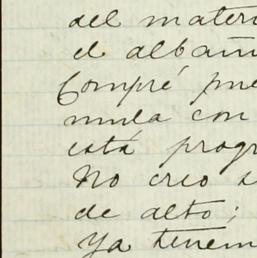 del materi
el albañi
Compré pue
mula con
está progr
No creo s
de alto;
Ya tenem